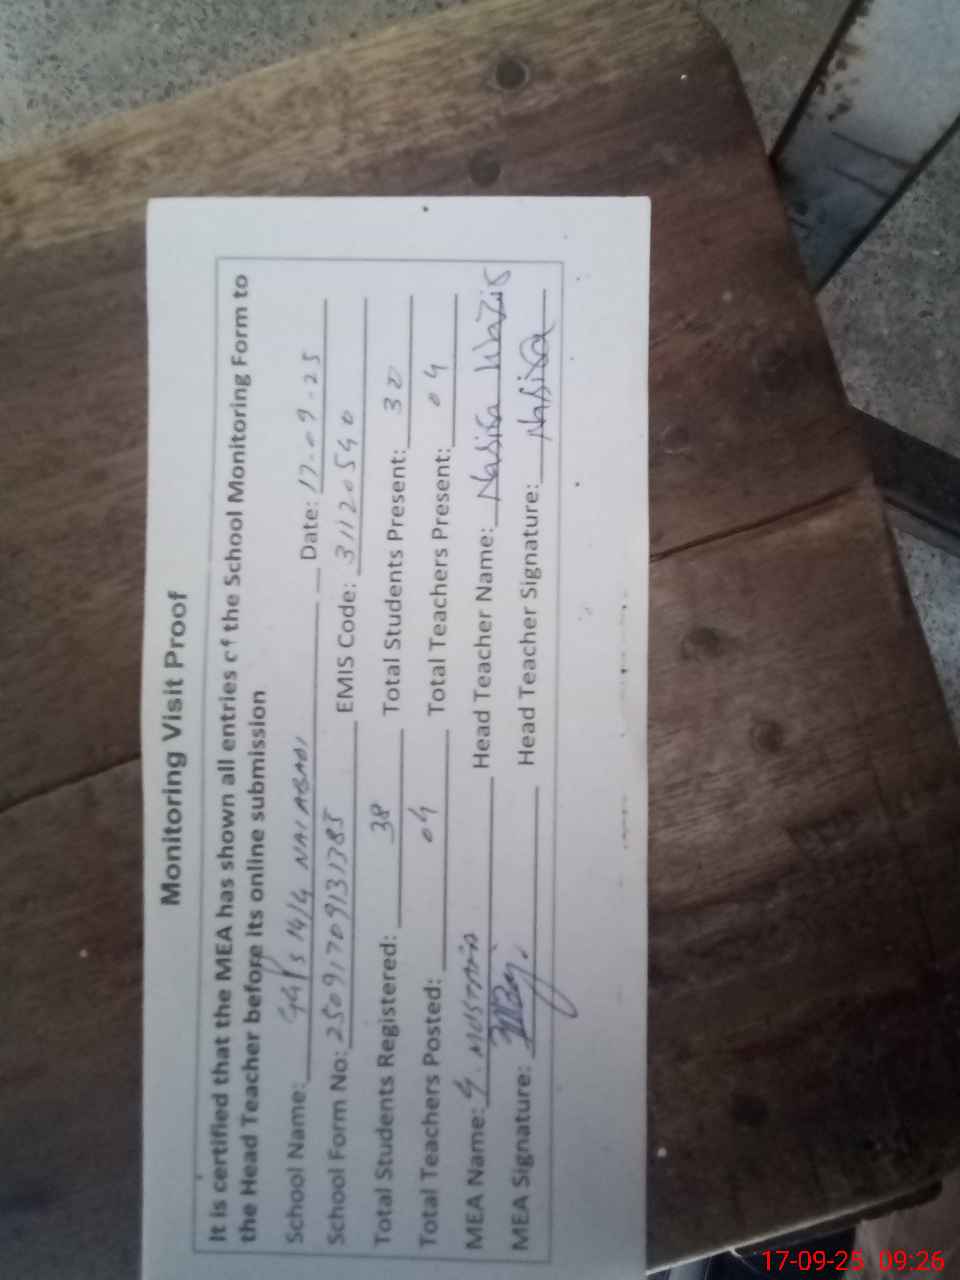 Monitoring Visit Proof
It is certified that the MEA has shown all entries of the School Monitoring Form to
the Head Teacher before its online submission
School Name: GGPS 14/G NAI ABADI Date: 17-09-25
School Form No: 25091709131385 EMIS Code: 31120540
Total Students Registered: 38 Total Students Present: 30
Total Teachers Posted: 04 Total Teachers Present: 04
MEA Name: G. MUSTAFA Head Teacher Name: Nasira Wazir
MEA Signature: Head Teacher Signature: Nasira
17-09-25 09:26